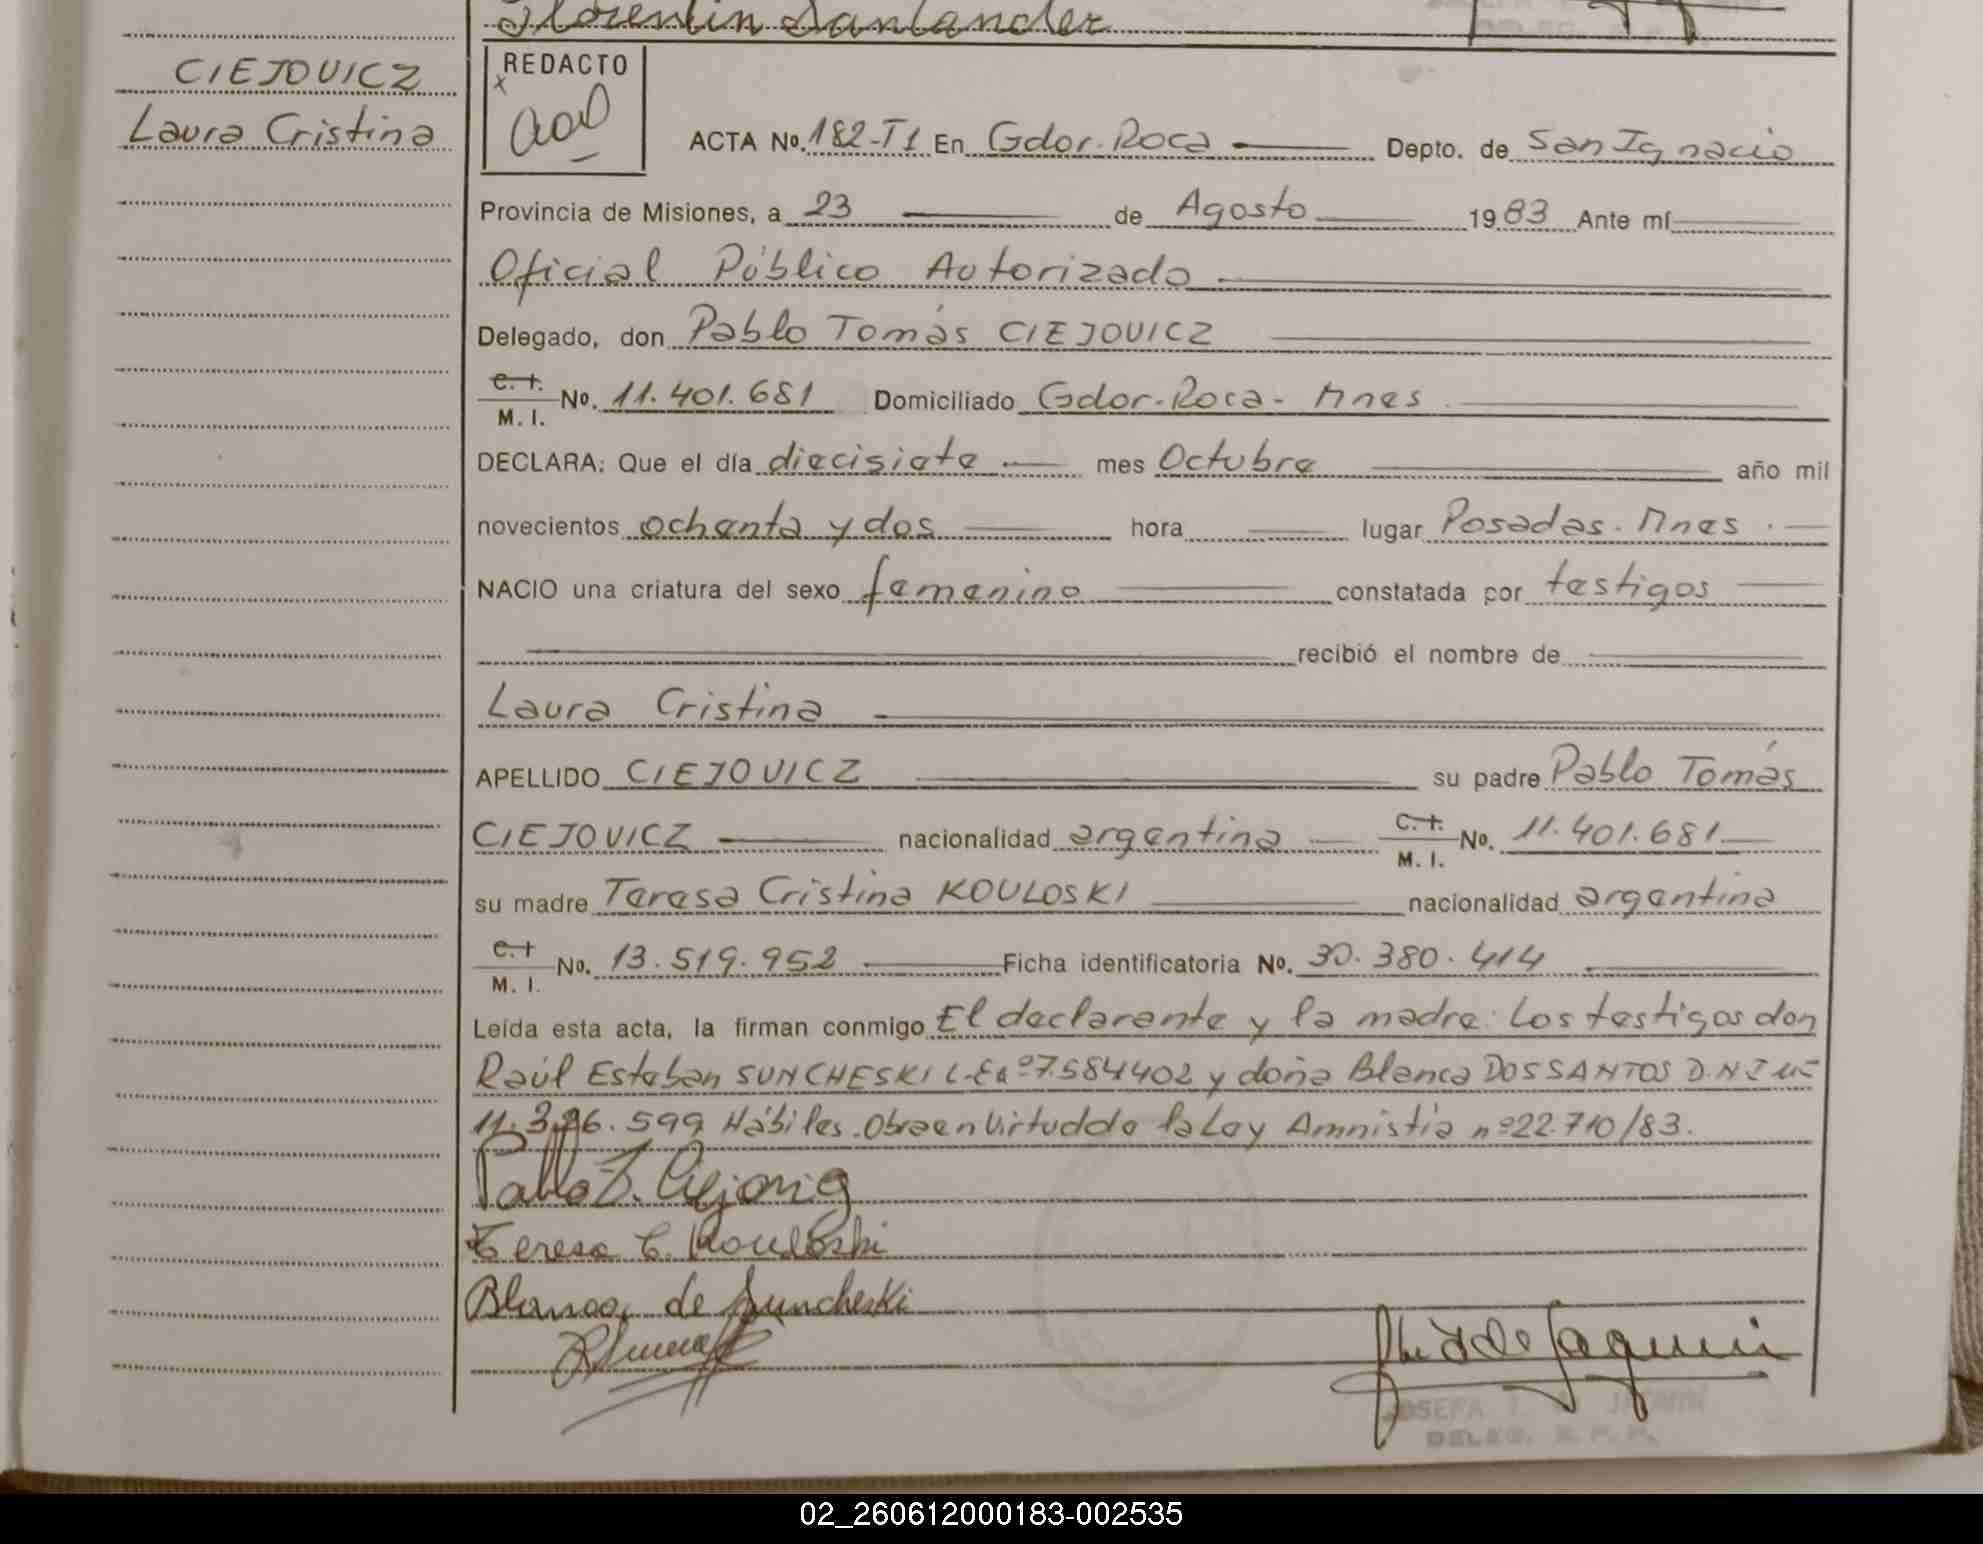 Florentin Santander
CIEJOVICZ
Laura Cristina
REDACTO
ACTA No. 182-T1 En Gdor. Roca Depto. de San Ignacio
Provincia de Misiones, a 23 de Agosto 1983 Ante mí
Oficial Público Autorizado
Delegado, don Pablo Tomás CIEJOVICZ
C. I.
M. I. No. 11.401.681 Domiciliado Gdor. Roca - Mnes
DECLARA: Que el día diecisiete mes Octubre año mil
novecientos ochenta y dos hora lugar Posadas. Mnes.
NACIO una criatura del sexo femenino constatada por testigos
recibió el nombre de
Laura Cristina
APELLIDO CIEJOVICZ su padre Pablo Tomás
CIEJOVICZ nacionalidad argentina C. I. M. I. No. 11.401.681
su madre Teresa Cristina KOULOSKI nacionalidad argentina
C. I.
M. I. No. 13.519.952 Ficha identificatoria No. 30.380.414
Leída esta acta, la firman conmigo El declarante y la madre. Los testigos don
Raúl Esteban SUNCHESKI L.E nº 7.584402 y doña Blanca DOS SANTOS D.N.I nº
11.396.599 Hábiles. Obra en Virtud de la Ley Amnistía nº 22.710/83.
Teresa C. Kouloski
Blanca de Suncheski
JOSEFA
DELEG. R. P. P.
02_260612000183-002535